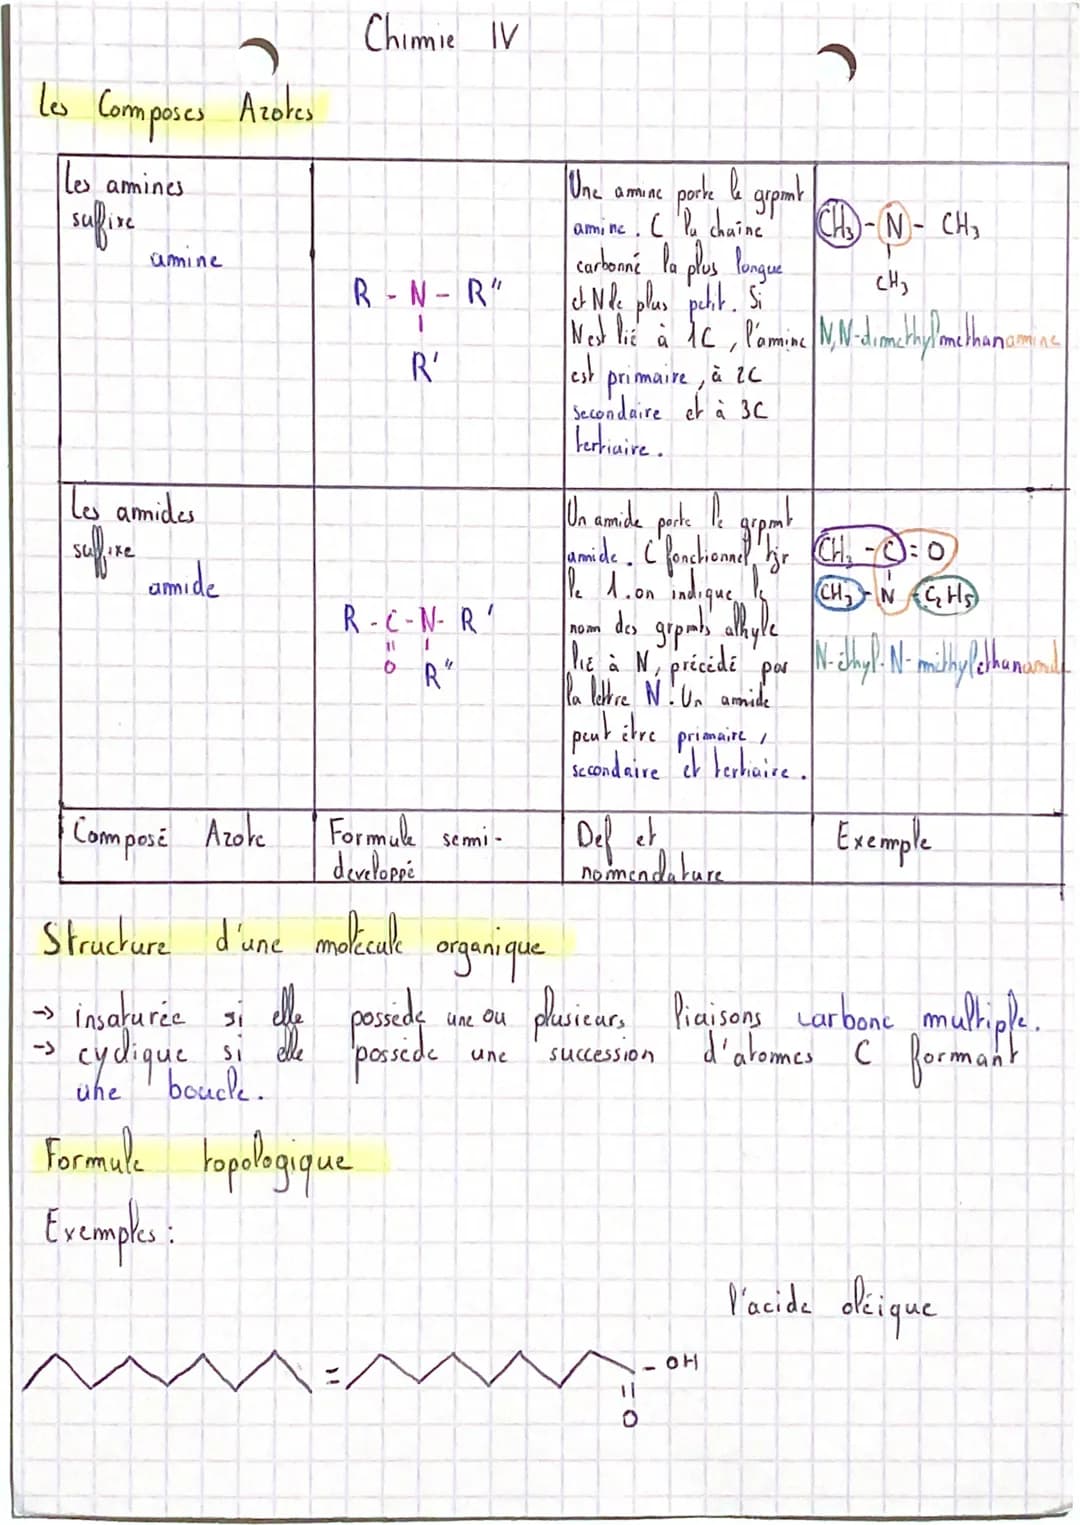 Chimie IV
Les Composes Azotes
Les amines
suffixe
amine
R - N - R"
R'
Une amine porte le grpmt
amine. C la chaîne
carbonné la plus longue
et N le plus petit. Si
N est lié à 1C, l'amine
est primaire, à 2C
secondaire et à 3C
tertiaire.
CH3 - N - CH3
CH3
N,N-dimethylmethanamine
Les amides
suffixe
amide
R - C - N - R'
O R"
Un amide porte le grpmt
amide. C fonctionnel tjr
le 1. on indique le
nom des grpmts alhyle
lié à N, précédé par
la lettre N. Un amide
peut être primaire,
secondaire et tertiaire.
CH3 - C = O
CH3 - N - C2H5
N-éthyl-N-méthylethanamide
Composé Azote
Formule semi-
developpé
Def et
nomenclature
Exemple
Structure d'une molécule organique
→ insaturée si elle possède une ou plusieurs liaisons carbone multiple.
→ cyclique si elle possède une succession d'atomes C formant
une boucle.
Formule topologique
Exemples :
l'acide oléique
= - OH
O